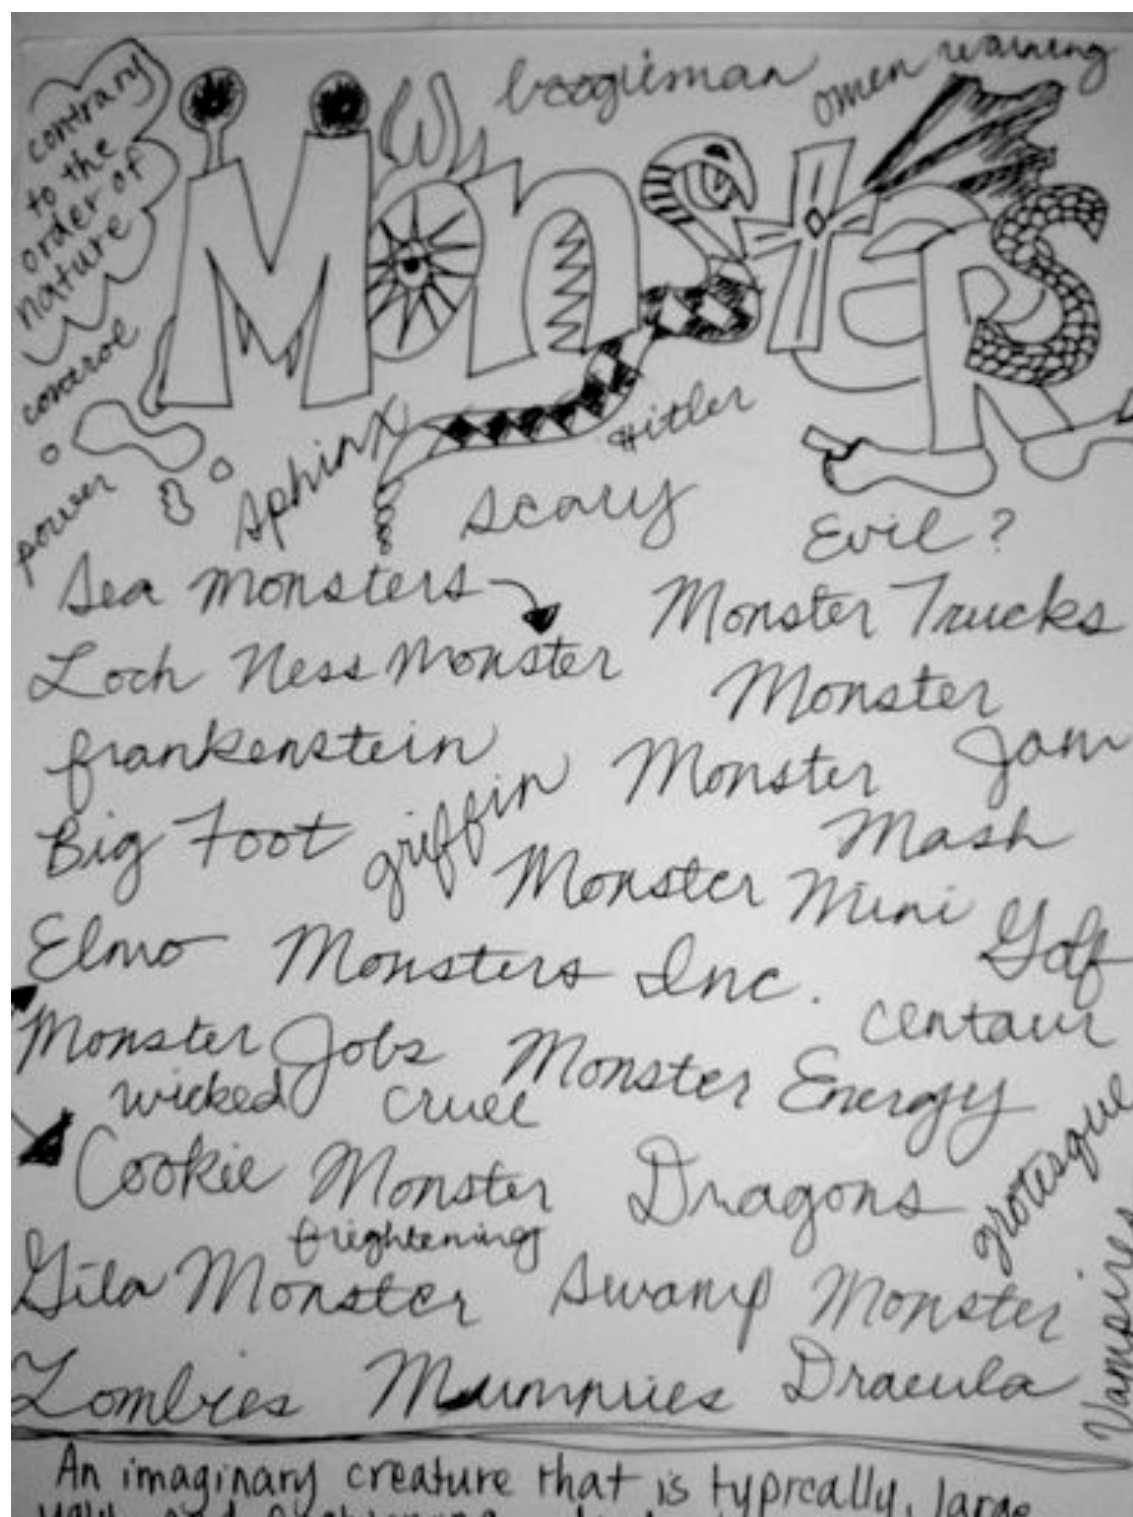 boogieman
omen warning
contrary
to the
order of
nature
Monsters
control
power
Sphinx
Hitler
Scary
Evil?
Sea Monsters
Monster Trucks
Loch Ness Monster
Monster
Jam
frankenstein
Monster
Mash
Big Foot
griffin
Monster Mini
Golf
Elmo
Monsters Inc.
centaur
Monster Jobs
Monster Energy
wicked
cruel
Cookie Monster
Dragons
grotesque
frightening
Gila Monster
Swamp Monster
Vampires
Zombies
Mummies
Dracula
An imaginary creature that is typically, large